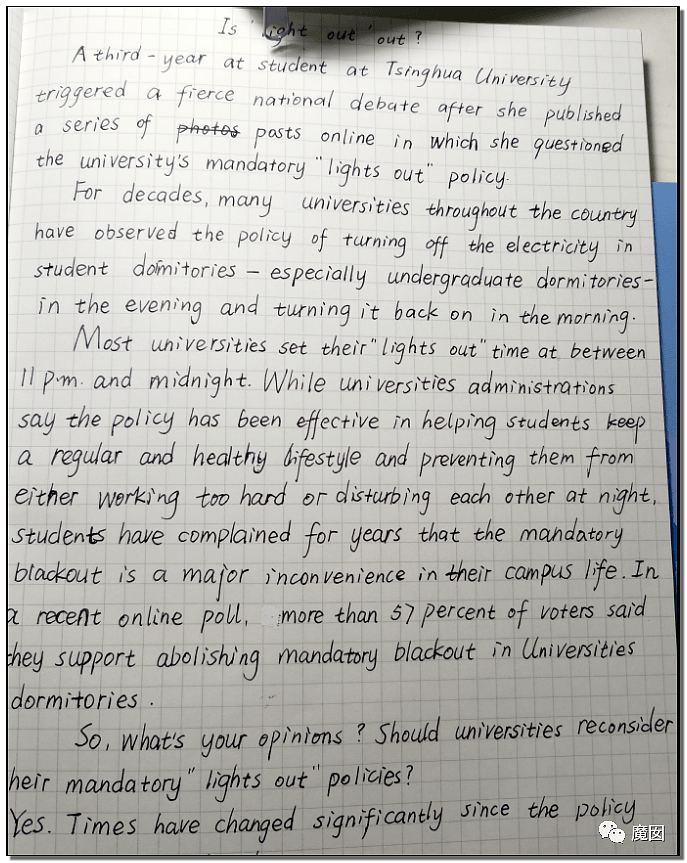 Is "light out" out?
A third-year at student at Tsinghua University
triggered a fierce national debate after she published
a series of photos posts online in which she questioned
the university's mandatory "lights out" policy.
For decades, many universities throughout the country
have observed the policy of turning off the electricity in
student domitories – especially undergraduate dormitories–
in the evening and turning it back on in the morning.
Most universities set their "lights out" time at between
11 p.m. and midnight. While universities administrations
say the policy has been effective in helping students keep
a regular and healthy lifestyle and preventing them from
either working too hard or disturbing each other at night,
students have complained for years that the mandatory
blackout is a major inconvenience in their campus life. In
a recent online poll, more than 57 percent of voters said
they support abolishing mandatory blackout in Universities
dormitories.
So, what's your opinions? Should universities reconsider
heir mandatory "lights out" policies?
Yes. Times have changed significantly since the policy
魔囡